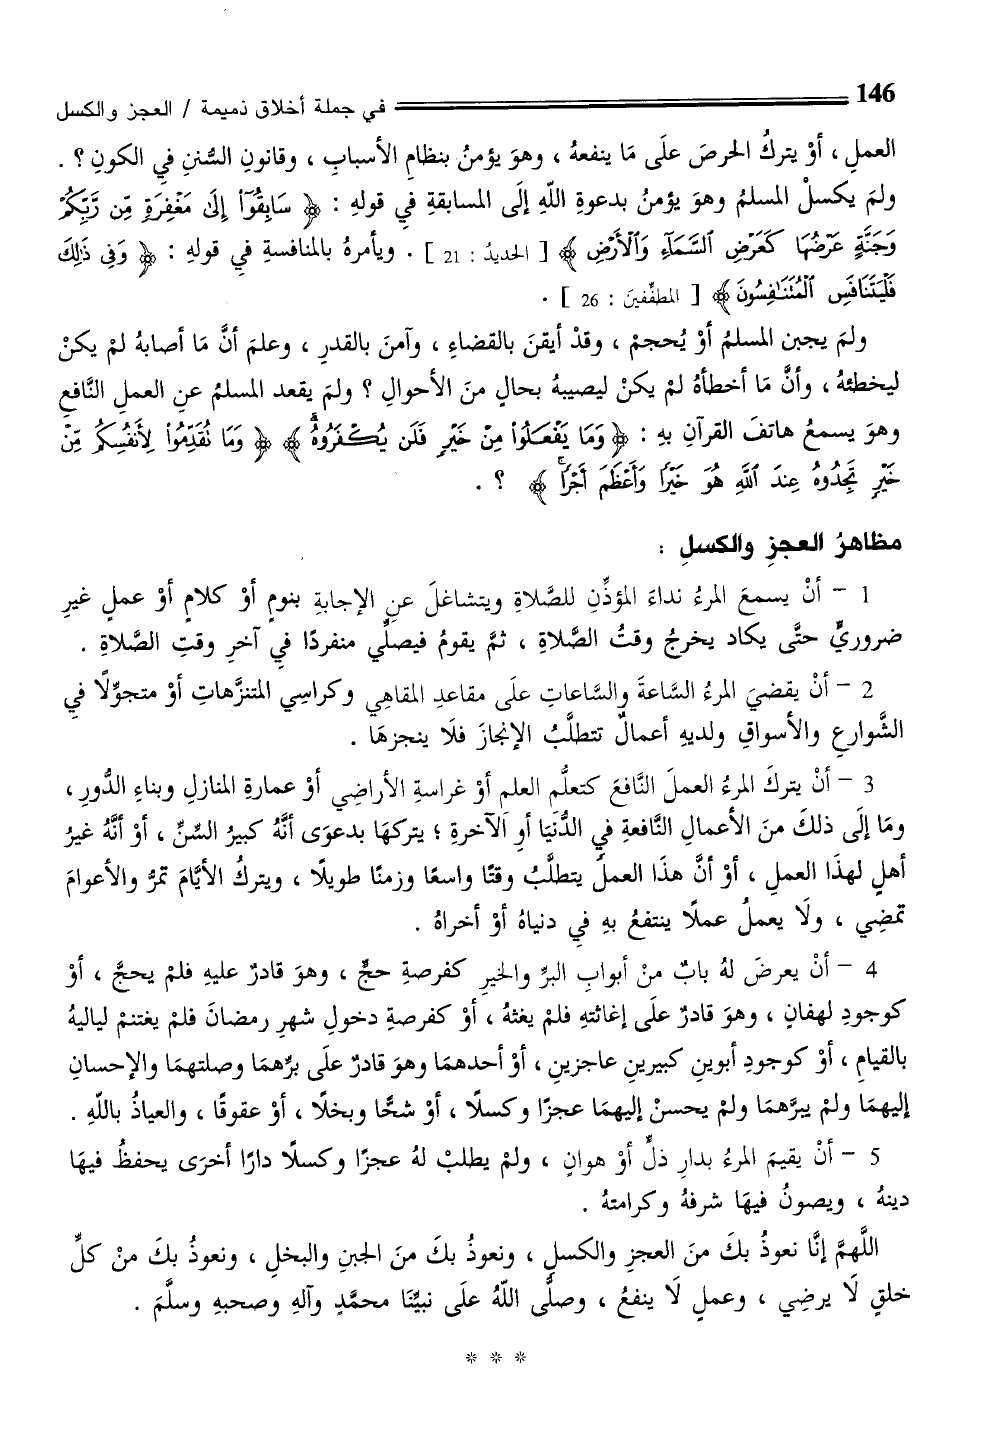 146 في جملة أخلاق ذميمة / العجز والكسل
العملِ ، أوْ يتركُ الحرصَ علَى مَا ينفعهُ ، وهوَ يؤمنُ بنظامِ الأسبابِ ، وقانونِ السُّننِ في الكونِ ؟ .
ولمَ يكسلُ المسلمُ وهوَ يؤمنُ بدعوةِ اللّهِ إلَى المسابقةِ في قولهِ : ﴿ سَابِقُوٓا۟ إِلَىٰ مَغْفِرَةٍ مِّن رَّبِّكُمْ
وَجَنَّةٍ عَرْضُهَا كَعَرْضِ ٱلسَّمَآءِ وَٱلْأَرْضِ ﴾ [ الحديدُ : 21 ] . ويأمرهُ بالمنافسةِ في قولهِ : ﴿ وَفِى ذَٰلِكَ
فَلْيَتَنَافَسِ ٱلْمُتَنَـٰفِسُونَ ﴾ [ المطفِّفينَ : 26 ] .
ولمَ يجبن المسلمُ أوْ يُحجمْ ، وقدْ أيقنَ بالقضاءِ ، وآمنَ بالقدرِ ، وعلمَ أنَّ مَا أصابهُ لمْ يكنْ
ليخطئهُ ، وأنَّ مَا أخطأهُ لمْ يكنْ ليصيبهُ بحالٍ منَ الأحوالِ ؟ ولمَ يقعد المسلمُ عنِ العملِ النَّافعِ
وهوَ يسمعُ هاتفَ القرآنِ بهِ : ﴿ وَمَا يَفْعَلُوا۟ مِنْ خَيْرٍ فَلَن يُكْفَرُوهُ ﴾ ﴿ وَمَا تُقَدِّمُوا۟ لِأَنفُسِكُم مِّنْ
خَيْرٍ تَجِدُوهُ عِندَ ٱللَّهِ هُوَ خَيْرًا وَأَعْظَمَ أَجْرًا ﴾ ؟ .
مظاهرُ العجزِ والكسلِ :
1 - أنْ يسمعَ المرءُ نداءَ المؤذِّنِ للصَّلاةِ ويتشاغلَ عنِ الإجابةِ بنومٍ أوْ كلامٍ أوْ عملٍ غيرِ
ضروريٍّ حتَّى يكاد يخرجُ وقتُ الصَّلاةِ ، ثمَّ يقومُ فيصلِّي منفردًا في آخرِ وقتِ الصَّلاةِ .
2 - أنْ يقضيَ المرءُ السَّاعةَ والسَّاعاتِ علَى مقاعدِ المقاهِي وكراسِي المتنزَّهاتِ أوْ متجوِّلًا فِي
الشَّوارعِ والأسواقِ ولديهِ أعمالٌ تتطلَّبُ الإنجازَ فلَا ينجزهَا .
3 - أنْ يتركَ المرءُ العملَ النَّافعَ كتعلُّمِ العلمِ أوْ غراسةِ الأراضِي أوْ عمارةِ المنازلِ وبناءِ الدُّورِ ،
ومَا إلَى ذلكَ منَ الأعمالِ النَّافعةِ فِي الدُّنيَا أوِ الآخرةِ ؛ يتركهَا بدعوَى أنَّهُ كبيرُ السِّنِّ ، أوْ أنَّهُ غيرُ
أهلٍ لهذَا العملِ ، أوْ أنَّ هذَا العملَ يتطلَّبُ وقتًا واسعًا وزمنًا طويلًا ، ويتركُ الأيَّامَ تمرُّ والأعوامَ
تمضِي ، ولَا يعملُ عملًا ينتفعُ بهِ فِي دنياهُ أوْ أخراهُ .
4 - أنْ يعرضَ لهُ بابٌ منْ أبوابِ البرِّ والخيرِ كفرصةِ حجٍّ ، وهوَ قادرٌ عليهِ فلمْ يحجَّ ، أوْ
كوجودِ لهفانٍ ، وهوَ قادرٌ علَى إغاثتهِ فلمْ يغثهُ ، أوْ كفرصةِ دخولِ شهرِ رمضانَ فلمْ يغتنمْ لياليهُ
بالقيامِ ، أوْ كوجودِ أبوينِ كبيرينِ عاجزينِ ، أوْ أحدهمَا وهوَ قادرٌ علَى برِّهمَا وصلتهمَا والإحسانِ
إليهمَا ولمْ يبرَّهمَا ولمْ يحسنْ إليهمَا عجزًا وكسلًا ، أوْ شحًّا وبخلًا ، أوْ عقوقًا ، والعياذُ باللّهِ .
5 - أنْ يقيمَ المرءُ بدارِ ذلٍّ أوْ هوانٍ ، ولمْ يطلبْ لهُ عجزًا وكسلًا دارًا أخرَى يحفظُ فيهَا
دينهُ ، ويصونُ فيهَا شرفهُ وكرامتهُ .
اللَّهمَّ إنَّا نعوذُ بكَ منَ العجزِ والكسلِ ، ونعوذُ بكَ منَ الجبنِ والبخلِ ، ونعوذُ بكَ منْ كلِّ
خلقٍ لَا يرضِي ، وعملٍ لَا ينفعُ ، وصلَّى اللّهُ علَى نبيِّنَا محمَّدٍ وآلهِ وصحبهِ وسلَّمَ .
* * *